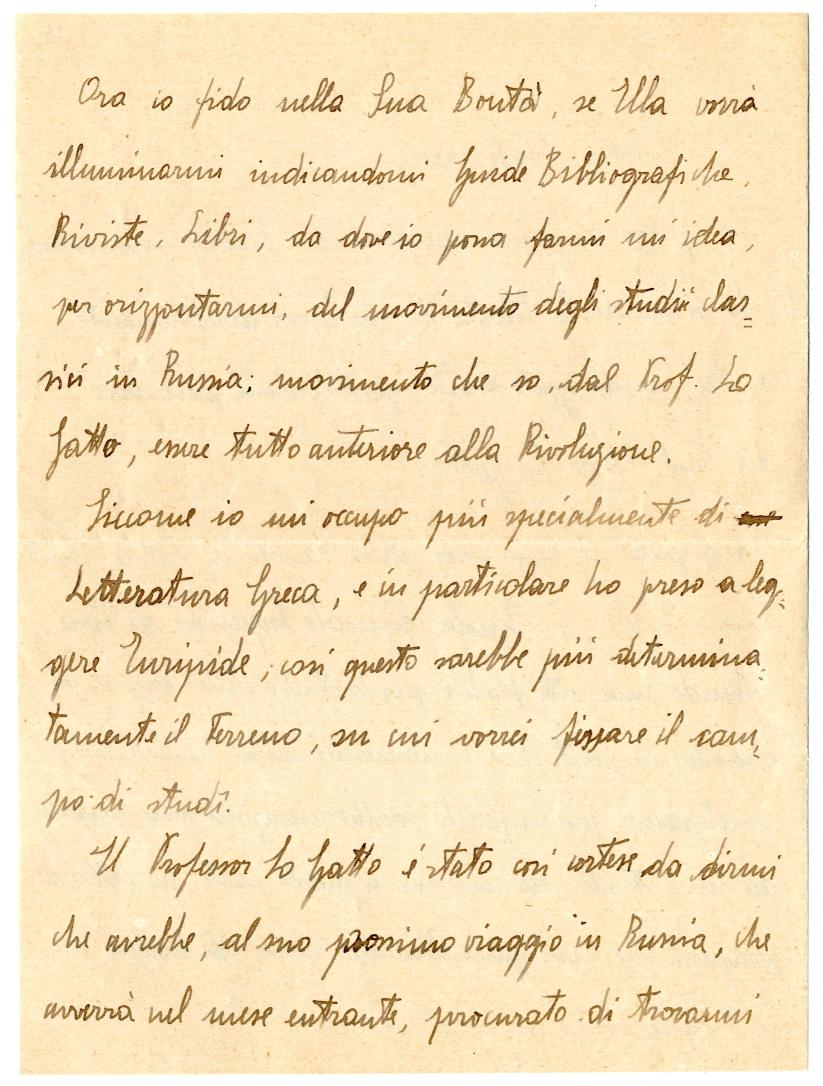 Ora io fido nella Sua Bontà, se Ella vorrà
illuminarmi indicandomi Guide Bibliografiche,
Riviste, Libri, da dove io possa farmi un'idea,
per orizzontarmi, del movimento degli studii clas=
sici in Russia; movimento che so, dal Prof. Lo
Gatto, essere tutto anteriore alla Rivoluzione.
Siccome io mi occupo più specialmente di
Letteratura Greca, e in particolare ho preso a leg=
gere Euripide, così questo sarebbe più determina=
tamente il Terreno, su cui vorrei fissare il cam=
po di studî.
Il Professor Lo Gatto è stato così cortese da dirmi
che avrebbe, al suo prossimo viaggio in Russia, che
avverrà nel mese entrante, procurato di trovarmi